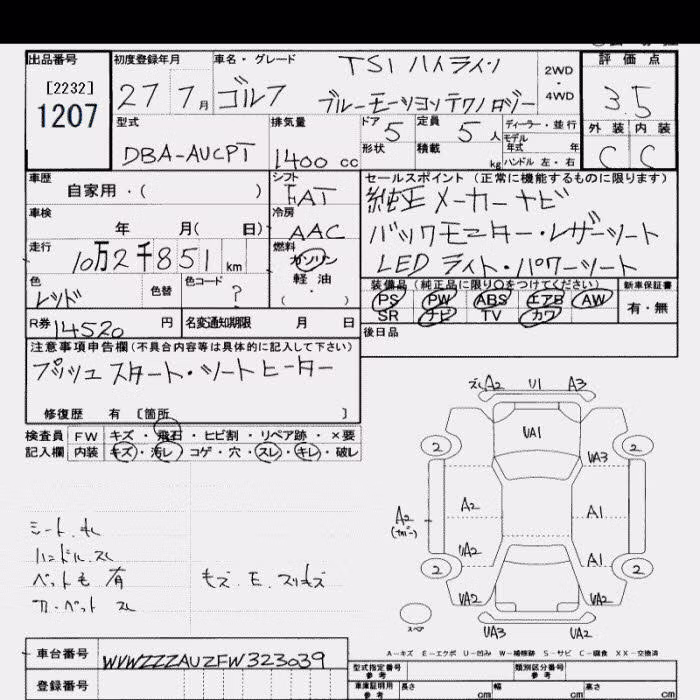 出品番号
[2232]
1207
初度登録年月
27 7月
車名・グレード
TSI ハイライン
ゴルフ ブルーモーションテクノロジー
2WD
・
4WD
評価点
3.5
外装 内装
C C
型式
DBA-AUCPT
排気量
1400 cc
ドア 5
定員 5人
形状
積載 kg
ディーラー・並行
モデル
年式 年
ハンドル 左・右
車歴
自家用・( )
シフト
FAT
車検
年 月( 日)
冷房
AAC
走行
10万2千851 km
燃料
ガソリン
軽油
( ・ )
色
レッド
色替
色コード
?
R券 14520 円
名変通知期限 月 日
セールスポイント (正常に機能するものに限ります)
純正メーカーナビ
バックモニター・レザーシート
LEDライト・パワーシート
装備品 (純正品に限り〇をつけてください)
PS PW ABS エアB AW
SR ナビ TV カワ
新車保証書
有・無
後日品
注意事項申告欄 (不具合内容等は具体的に記入して下さい)
プッシュスタート・シートヒーター
修復歴 有 〔箇所 〕
検査員 FW キズ・飛石・ヒビ割・リペア跡・×要
記入欄 内装 キズ・汚レ・コゲ・穴・スレ・キレ・破レ
シート.キレ
ハンドル.スレ
ペット毛 有
モズ.E.スリキズ
A2 U1 A3
UA1
2 2
UA3
A2 A2 A1
UA2 A1
2 2
UA2 UA2
スペア
UA3 UA2
A-キズ E-エクボ U-凹み W-補修跡 S-サビ C-腐食 XX-交換済
車台番号
WVWZZZAUZFW323039
登録番号
型式指定番号
参考
類別区分番号
参考
車庫証明用
参考
長さ cm
幅 cm
高さ cm